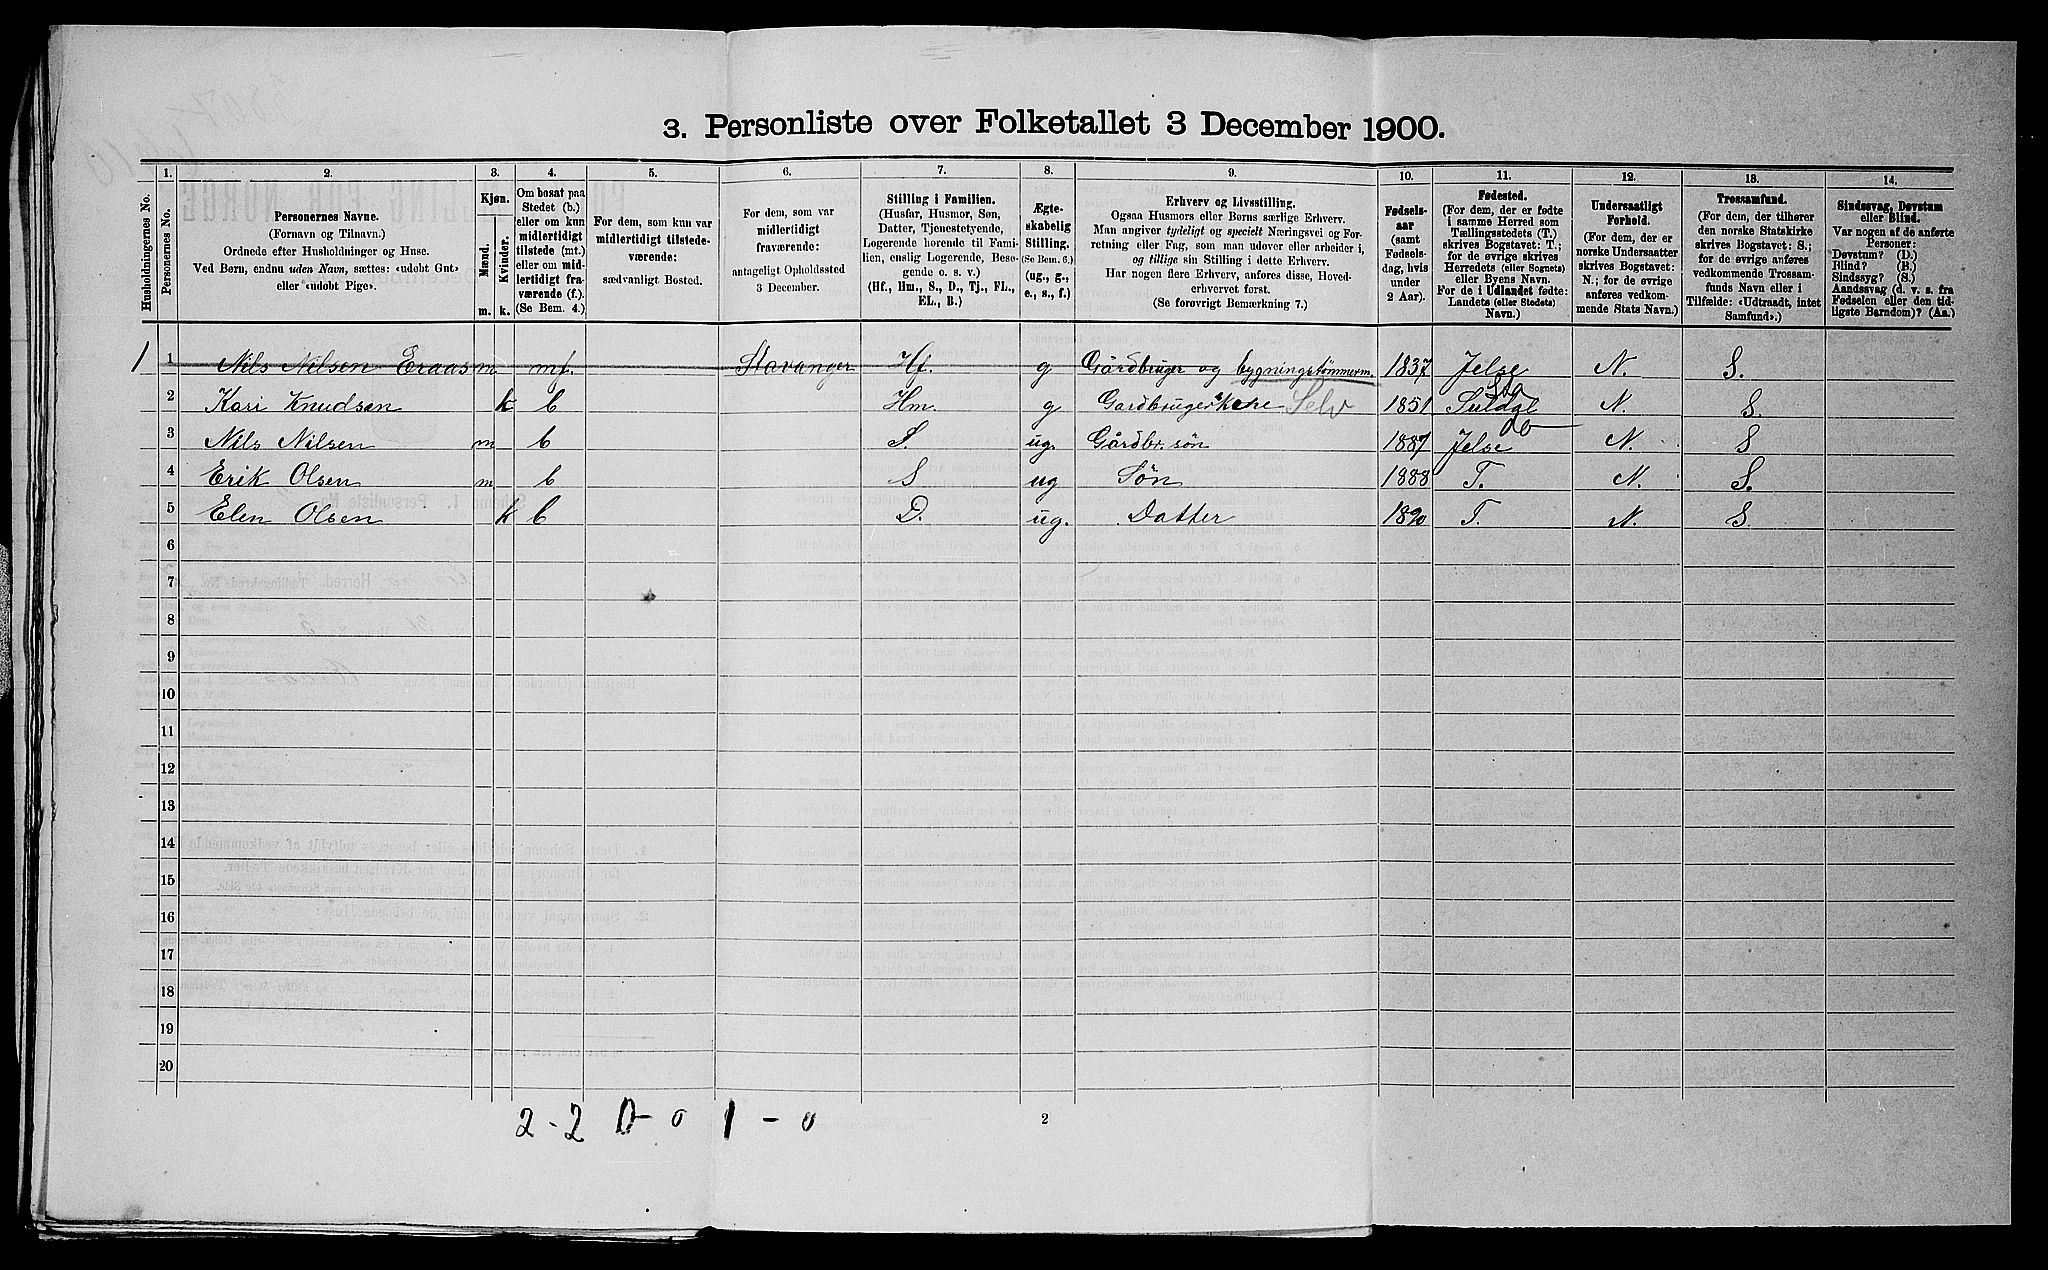 3. Personliste over Folketallet 3 December 1900.
1. 2. 3. 4. 5. 6. 7. 8. 9. 10. 11. 12. 13. 14.
Husholdningernes No.
Personernes No.
Personernes Navne.
(Fornavn og Tilnavn.)
Ordnede efter Husholdninger og Huse.
Ved Børn, endnu uden Navn, sættes: «udøbt Gut»
eller «udøbt Pige».
Kjøn.
Mænd.
Kvinder.
m. k.
Om bosat paa
Stedet (b.)
eller om kun
midlertidigt
tilstede (mt.)
eller om mid-
lertidigt fra-
værende (f.).
(Se Bem. 4.)
For dem, som kun var
midlertidigt tilstede-
værende:
sædvanligt Bosted.
For dem, som var
midlertidigt
fraværende:
antageligt Opholdssted
3 December.
Stilling i Familien.
(Husfar, Husmor, Søn,
Datter, Tjenestetyende,
Logerende hørende til Fami-
lien, enslig Logerende, Besø-
gende o. s. v.)
(Hf., Hm., S., D., Tj., FL.,
EL., B.)
Ægte-
skabelig
Stilling.
(Se Bem. 6.)
(ug., g.,
e., s., f.)
Erhverv og Livsstilling.
Ogsaa Husmors eller Børns særlige Erhverv.
Man angiver tydeligt og specielt Næringsvei og For-
retning eller Fag, som man udøver eller arbeider i,
og tillige sin Stilling i dette Erhverv.
Har nogen flere Erhverv, anføres disse, Hoved-
erhvervet først.
(Se forøvrigt Bemærkning 7.)
Fødsels-
aar
(samt
Fødsels-
dag, hvis
under
2 Aar).
Fødested.
(For dem, der er fødte
i samme Herred som
Tællingsstedets (T.)
skrives Bogstavet: T.;
for de øvrige skrives
Herredets (eller Sognets)
eller Byens Navn.
For de i Udlandet fødte:
Landets (eller Stedets)
Navn.)
Undersaatligt
Forhold.
(For dem, der er
norske Undersaatter
skrives Bogstavet:
N.; for de øvrige
anføres vedkom-
mende Stats Navn.)
Trossamfund.
(For dem, der tilhører
den norske Statskirke
skrives Bogstavet: S.;
for de øvrige anføres
vedkommende Trossam-
funds Navn eller i
Tilfælde: «Udtraadt, intet
Samfund».)
Sindssvag, Døvstum
eller Blind.
Var nogen af de anførte
Personer:
Døvstum? (D.)
Blind? (B.)
Sindssyg? (S.)
Aandssvag (d. v. s. fra
Fødselen eller den tid-
ligste Barndom)? (Aa.)
1 1 Nils Nilsen Eraas m mt. Stavanger Hf. g Gårdbruger og bygningstømmerm. 1837 Jelse N. S.
2 Kari Knudsen k b Hm. g Gardbruger Selv 1851 Suldal Sta N. S.
3 Nils Nilsen m b S. ug. Gårdbr. søn 1887 Jelse do N. S
4 Erik Olsen m b S ug Søn 1888 T. N. S.
5 Elen Olsen k b D. ug. Datter 1890 T. N. S
6
7
8
9
10
11
12
13
14
15
16
17
18
19
20
2 - 2 0 - 0 1 - 0
2